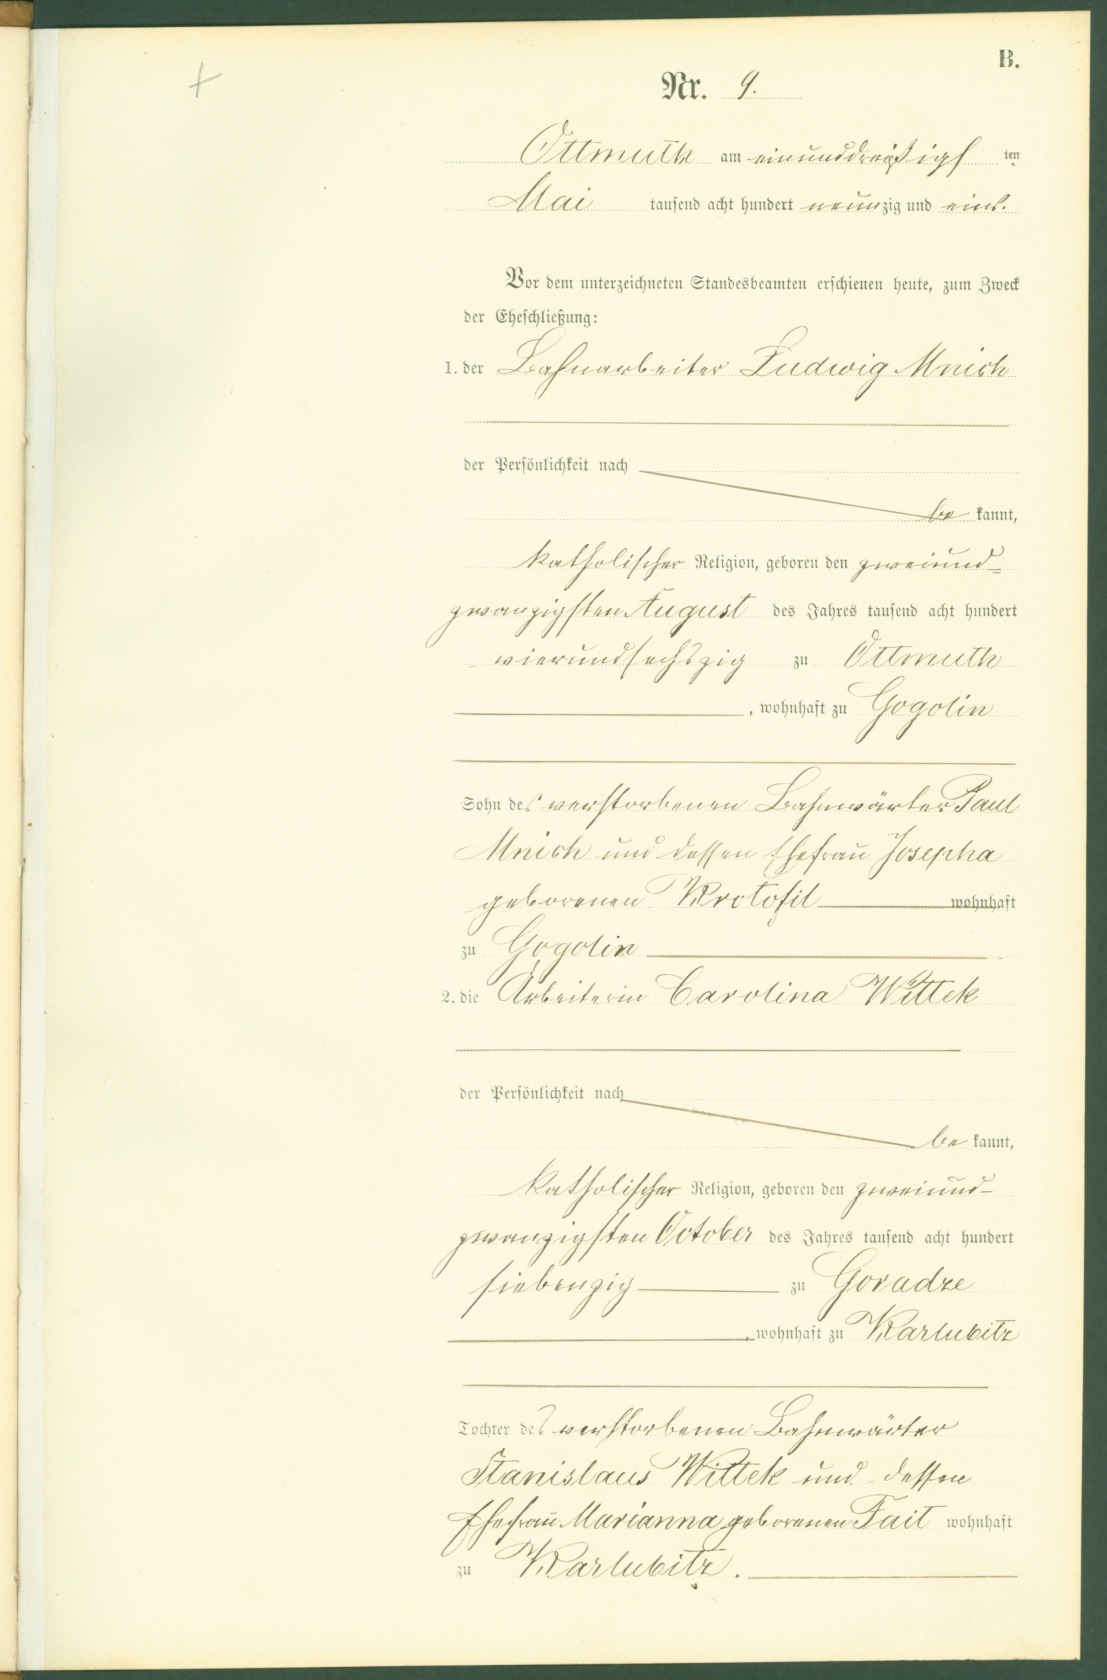 B.
Nr. 9.
Ottmuth am einunddreißigs ten
Mai tausend acht hundert neunzig und eins.
Vor dem unterzeichneten Standesbeamten erschienen heute, zum Zweck
der Eheschließung:
1. der Bahnarbeiter Ludwig Mnich
der Persönlichkeit nach
be kannt,
katholischer Religion, geboren den zweiund=
zwanzigsten August des Jahres tausend acht hundert
vierundsechszig zu Ottmuth
, wohnhaft zu Gogolin
Sohn des verstorbenen Bahnwärter Paul
Mnich und dessen Ehefrau Josepha
geborenen Krotofil wohnhaft
zu Gogolin
2. die Arbeiterin Carolina Wittek
der Persönlichkeit nach
be kannt,
katholischer Religion, geboren den zweiund-
zwanzigsten October des Jahres tausend acht hundert
siebenzig zu Goradze
, wohnhaft zu Karlubitz
Tochter des verstorbenen Bahnwärter
Stanislaus Wittek und dessen
Ehefrau Marianna geborenen Fait wohnhaft
zu Karlubitz.